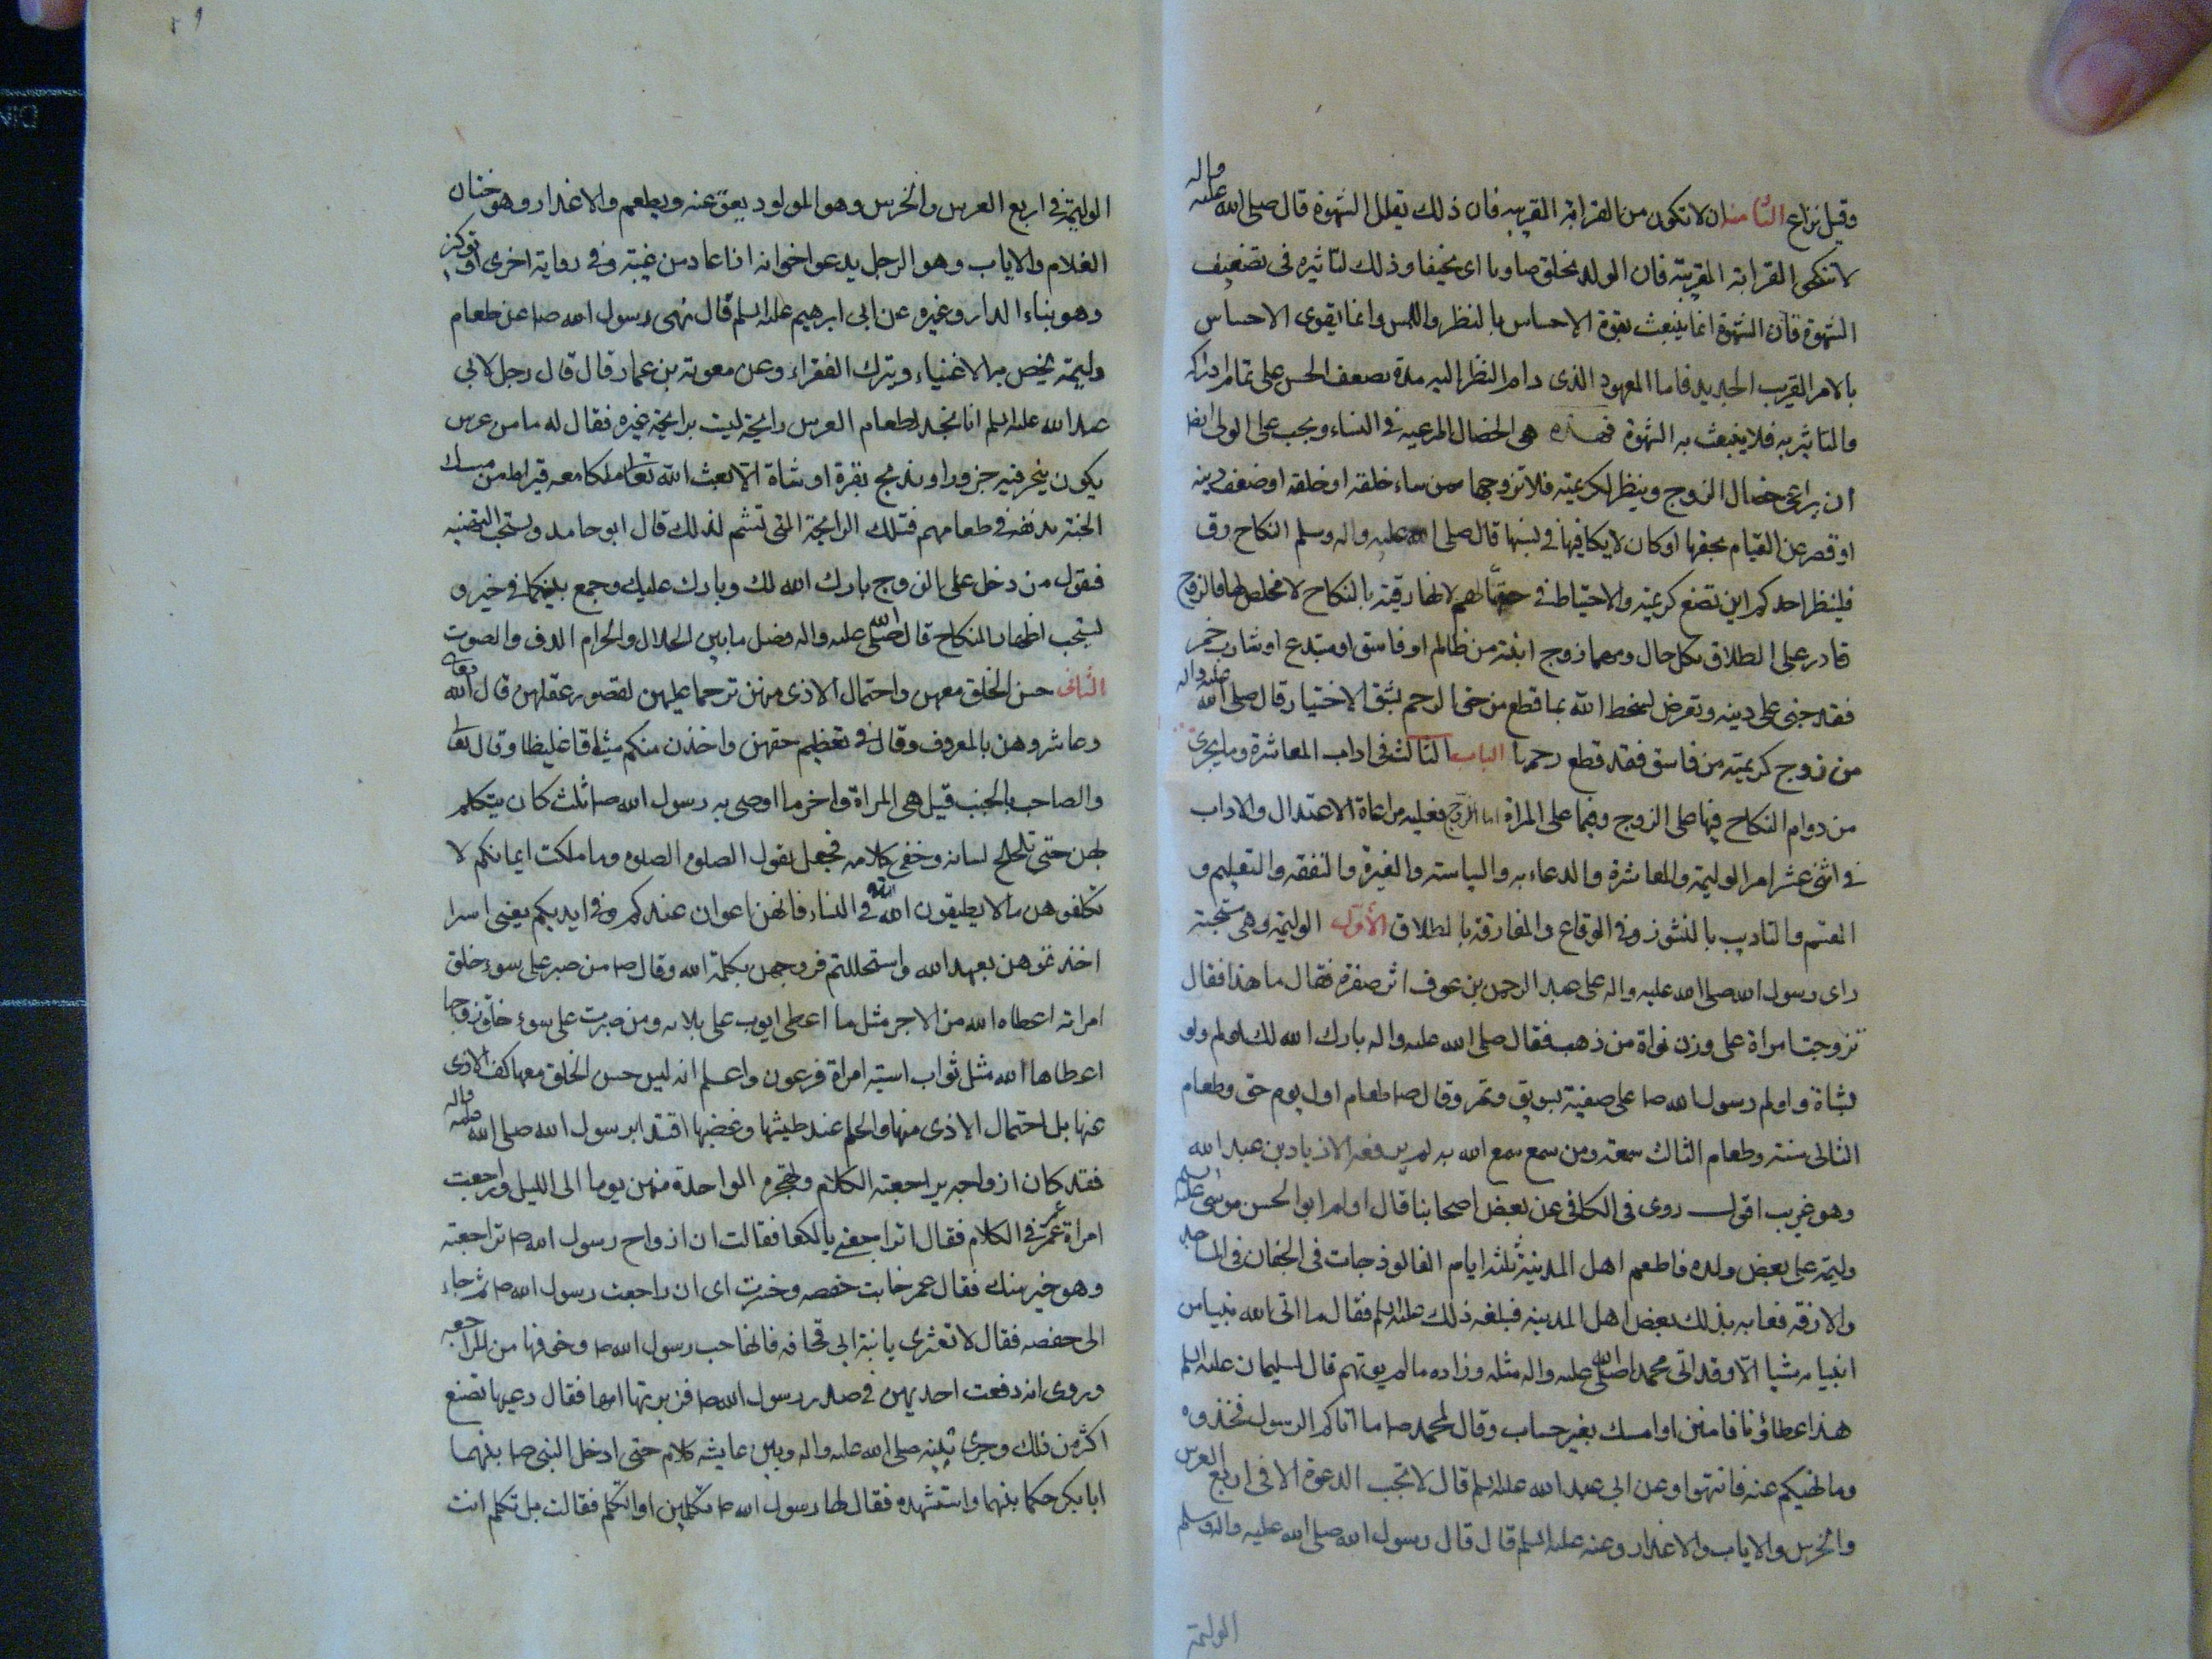 وقيل نزاع الثامنة ان لا تكون من القرابة القريبه فان ذلك يقلل الشهوة قال صلى الله عليه واله
لا تنكحوا القرابة القريبة فان الولد يخلق ضاويا اى نحيفا وذلك لتاثيره فى تضعيف
الشهوة فان الشهوة انما ينبعث بقوة الاحساس بالنظر واللمس وانما يقوى الاحساس
بالامر القريب الجديد فاما المعهود الذى دام النظر اليه مدة يضعف الحس على تمام ادراكه
والتاثير به فلا ينبعث به الشهوة فهذه هى الخصال المرعيه فى النساء ويجب على الولى ايضا
ان يراعى خصال الزوج وينظر لكريمته فلا تزوجها ممن ساء خلقه او خلقه او ضعف دينه
او قصر عن القيام بحقها او كان لا يكافيها فى نسبها قال صلى الله عليه واله وسلم النكاح رق
فلينظر احدكم اين تضع كريمته والاحتياط فى حقها اهم لانها رقيقه بالنكاح لا مخلص لها والزوج
قادر على الطلاق بكل حال ومهما زوج ابنته من ظالم او فاسق او مبتدع او شارب خمر
فقد جنى على دينه وتعرض لسخط الله بما قطع من حق الرحم بسوء الاختيار قال صلى الله عليه واله
من زوج كريمته من فاسق فقد قطع رحمها الباب الثالث فى اداب المعاشرة وما يجرى
من دوام النكاح فيما على الزوج وفيما على المراة اما الزوج فعليه مراعاة الاعتدال والاداب
فى اثنى عشر امرا الوليمة والمعاشرة والدعابه والسياسه والغيرة والنفقه والتعليم و
القسم والتاديب بالنشوز وفى الوقاع والمفارقة بالطلاق الأول الوليمة وهى مستحبة
راى رسول الله صلى الله عليه واله على عبد الرحمن بن عوف اثر صفرة فقال ما هذا فقال
تزوجت امراة على وزن نواة من ذهب فقال صلى الله عليه واله بارك الله لك اولم ولو
بشاة واولم رسول الله صا على صفية بسويق وتمر وقال صا طعام اول يوم حق وطعام
الثانى سنة وطعام الثالث سمعة ومن سمع سمع الله به لم يرفعه الا زياد بن عبد الله
وهو غريب اقول روى فى الكافى عن بعض اصحابنا قال اولم ابو الحسن موسى عليه السلم
وليمة على بعض ولده فاطعم اهل المدينة ثلثة ايام الفالوذجات فى الجفان فى المساجد
والازقه فعابه بذلك بعض اهل المدينه فبلغه ذلك عليه السلم فقال ما اتى الله نبيا من
انبيائه شيئا الا وقد اتى محمدا صلى الله عليه واله مثله وزاده ما لم يوتهم قال لسليمان عليه السلم
هذا عطاؤنا فامنن او امسك بغير حساب وقال لمحمد صا ما اتاكم الرسول فخذوه
وما نهيكم عنه فانتهوا وعن ابى عبد الله عليه السلم قال لا تجب الدعوة الا فى اربع العرس
والخرس والاياب والاعذار وعنه عليه السلم قال قال رسول الله صلى الله عليه واله وسلم
الوليمة
الوليمة فى اربع العرس والخرس وهو المولود يعق عنه ويطعم والاعذار وهو ختان
الغلام والاياب وهو الرجل يدعوا اخوانه اذا عاد من غيبته وفى رواية اخرى او توكير
وهو بناء الدار وغيره وعن ابى ابرهيم عليه السلم قال نهى رسول الله صا عن طعام
وليمة يخص بها الاغنياء ويترك الفقراء وعن معوية بن عمار قال قال رجل لابى
عبد الله عليه السلم انا نجد لطعام العرس رايحة ليست برايحة غيره فقال له ما من عرس
يكون ينحر فيه جزور او يذبح بقرة او شاة الا بعث الله تعا ملكا معه قيراط من مسك
الجنة يديفه فى طعامهم فتلك الرايحة التى تشم لذلك قال ابو حامد ويستحب التهنيه
فيقول من دخل على الزوج بارك الله لك وبارك عليك وجمع بينكما فى خير و
يستحب اظهار النكاح قال صلى الله عليه واله فصل ما بين الحلال والحرام الدف والصوت
الثانى حسن الخلق معهن واحتمال الاذى منهن ترحما عليهن لقصور عقلهن قال الله تعالى
وعاشروهن بالمعروف وقال فى تعظيم حقهن واخذن منكم ميثاقا غليظا وقال تعا
والصاحب بالجنب قيل هى المراة واخر ما اوصى به رسول الله صا ثلث كان يتكلم
بهن حتى تلجلج لسانه وخفى كلامه فجعل يقول الصلوة الصلوة وما ملكت ايمانكم لا
تكلفوهن ما لا يطيقون الله الله فى النساء فانهن عوان عندكم وفى ايديكم يعنى اسرا
اخذتموهن بعهد الله واستحللتم فروجهن بكلمة الله وقال صا من صبر على سوء خلق
امراته اعطاه الله من الاجر مثل ما اعطى ايوب على بلائه ومن صبرت على سوء خلق زوجها
اعطاها الله مثل ثواب اسية امراة فرعون واعلم انه ليس حسن الخلق معها كف الاذى
عنها بل احتمال الاذى منها والحلم عند طيشها وغضبها اقتدا برسول الله صلى الله عليه واله
فقد كان ازواجه يراجعنه الكلام وتهجره الواحدة منهن يوما الى الليل وراجعت
امراة عمر عمر فى الكلام فقال اتراجعنى يا لكعا فقالت ان ازواج رسول الله صا تراجعنه
وهو خير منك فقال عمر خابت حفصه وخسرت اى ان راجعت رسول الله صا ثم جاء
الى حفصه فقال لا تغترى يا ابنة ابى قحافه فانها حب رسول الله صا وخوفها من المراجعه
وروى انه دفعت احديهن فى صدر رسول الله صا فزبرتها امها فقال دعيها تصنع
اكثر من ذلك وجرى بينه صلى الله عليه واله وبين عايشه كلام حتى ادخل النبى صا بينهما
ابا بكر حكما بينهما واستشهده فقال لها رسول الله صا تكلمين او اتكلم فقالت بل تكلم انت